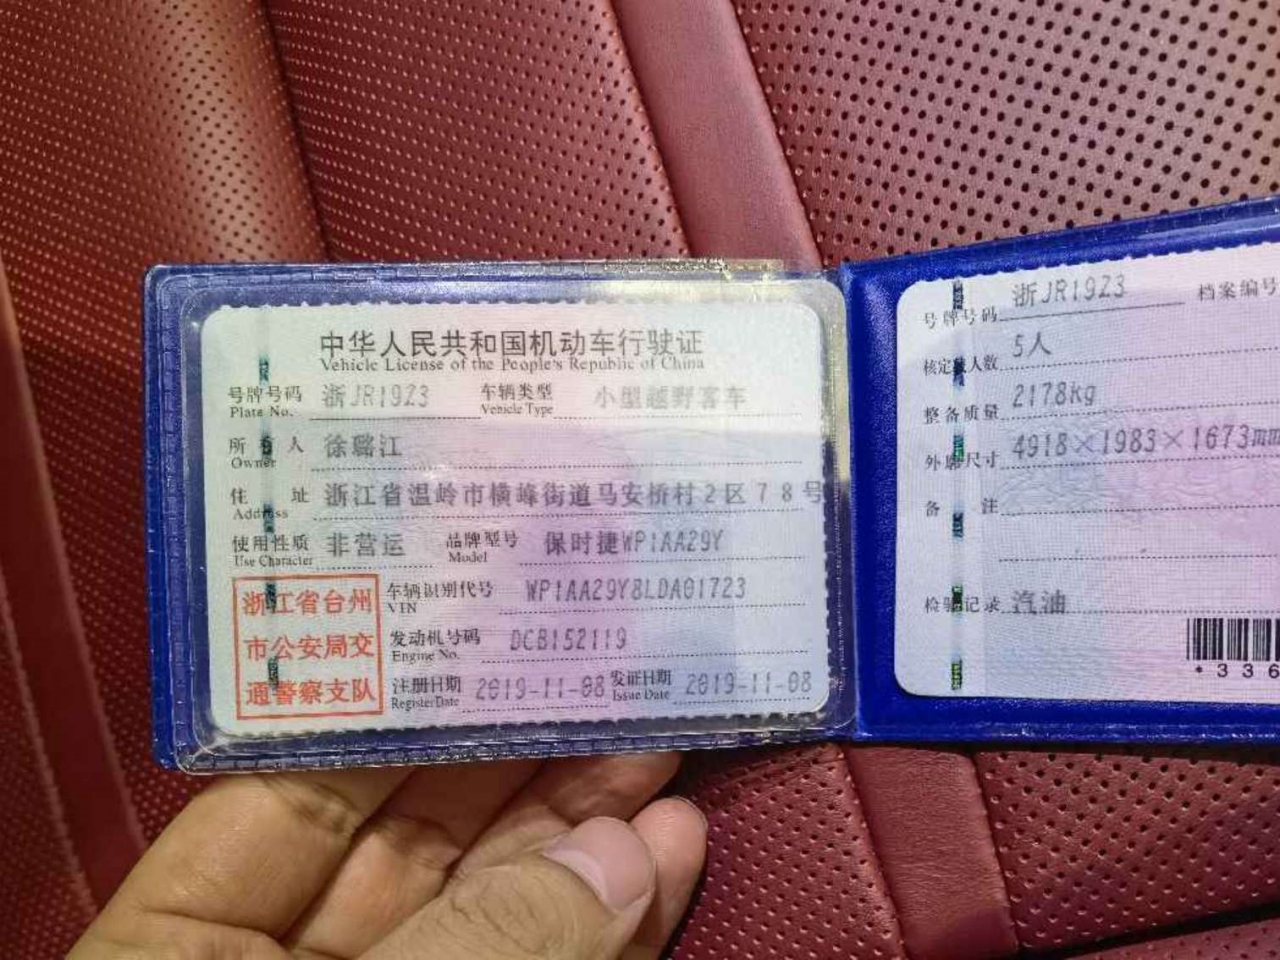 中华人民共和国机动车行驶证
Vehicle License of the People's Republic of China
号牌号码 浙JR19Z3 车辆类型 小型越野客车
Plate No. Vehicle Type
所有人 徐璐江
Owner
住址 浙江省温岭市横峰街道马安桥村2区78号
Address
使用性质 非营运 品牌型号 保时捷WP1AA29Y
Use Character Model
浙江省台州
市公安局交
通警察支队
车辆识别代号 WP1AA29Y8LDA01723
VIN
发动机号码 DCB152119
Engine No.
注册日期 2019-11-08 发证日期 2019-11-08
Register Date Issue Date
号牌号码 浙JR19Z3 档案编号
核定载人数 5人
整备质量 2178kg
外廓尺寸 4918×1983×1673mm
备注
检验记录 汽油
*336